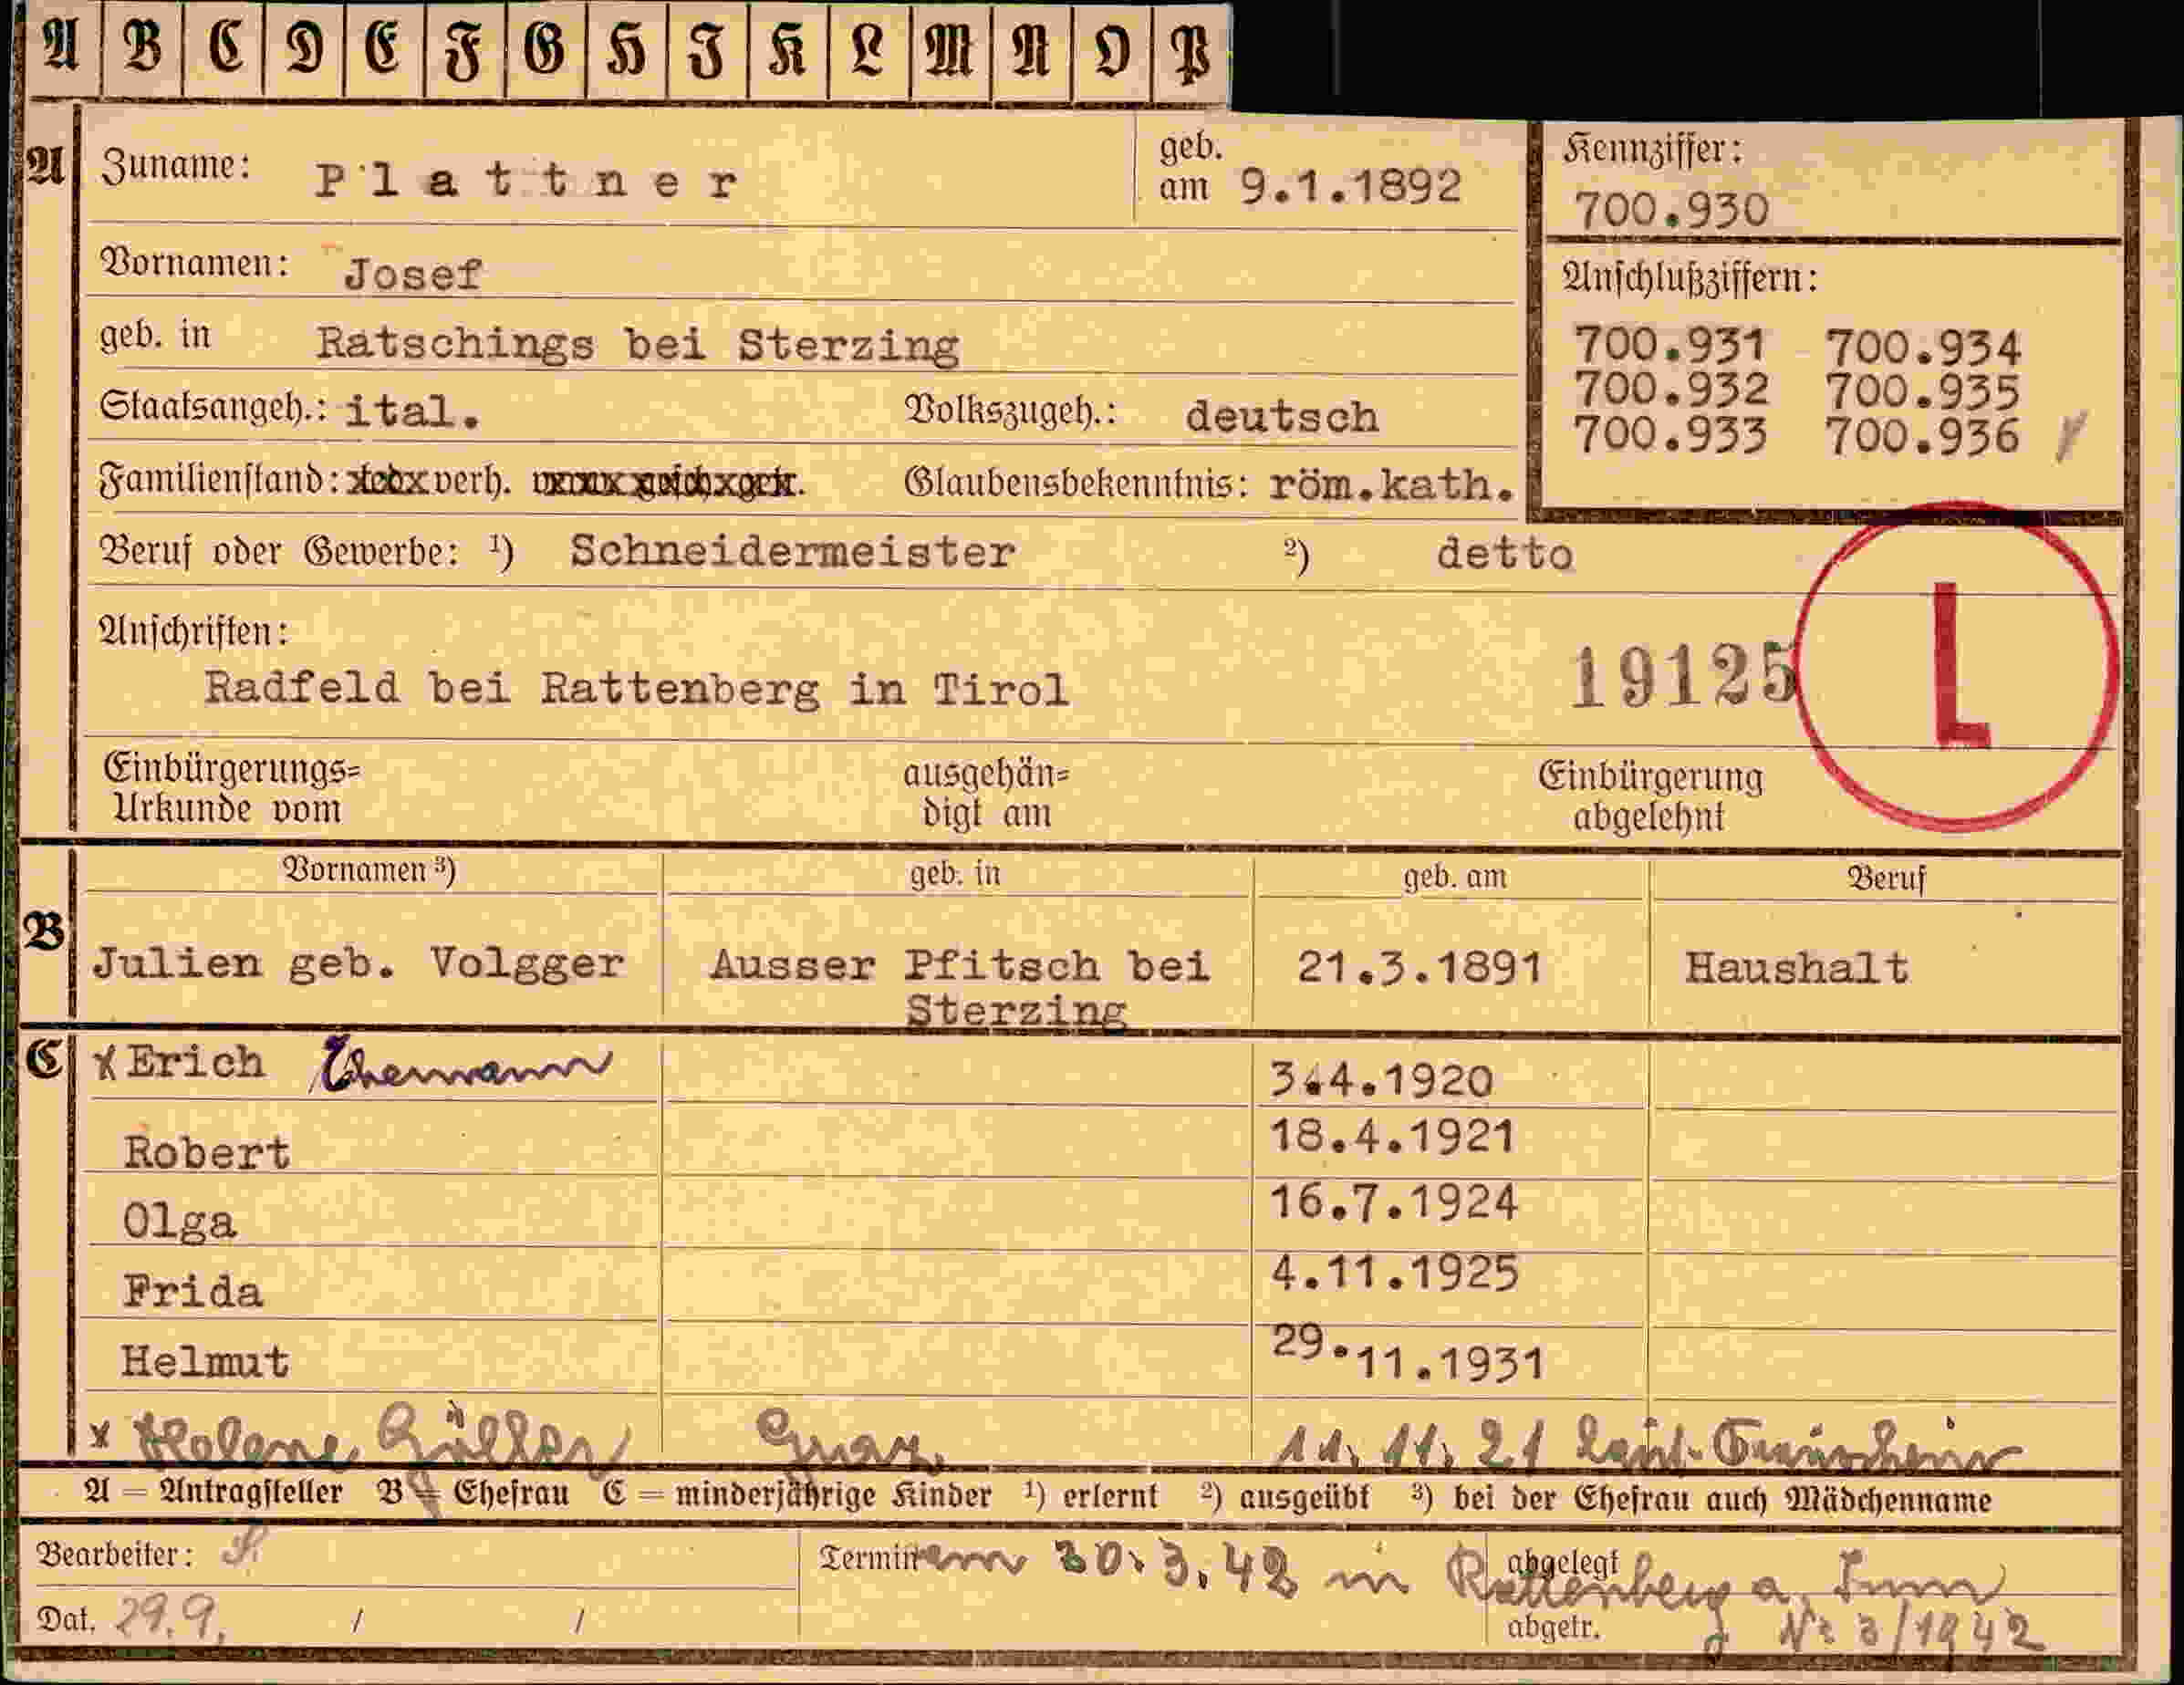 A B C D E F G H I K L M N O P
A Zuname: Plattner geb. am 9.1.1892
Kennziffer:
700.930
Vornamen: Josef
Anschlußziffern:
geb. in Ratschings bei Sterzing
700.931 700.934
700.932 700.935
700.933 700.936
Staatsangeh.: ital. Volkszugeh.: deutsch
Familienstand: verh. Glaubensbekenntnis: röm.kath.
Beruf oder Gewerbe: ¹) Schneidermeister ²) detto
Anschriften:
Radfeld bei Rattenberg in Tirol 19125 L
Einbürgerungs= ausgehän= Einbürgerung
Urkunde vom digt am abgelehnt
Vornamen ³) geb. in geb. am Beruf
B Julien geb. Volgger Ausser Pfitsch bei 21.3.1891 Haushalt
Sterzing
C x Erich Ehemann 3.4.1920
Robert 18.4.1921
Olga 16.7.1924
Frida 4.11.1925
Helmut 29.11.1931
x Helene Göller Graz 11. 11. 21 laut
A = Antragsteller B = Ehefrau C = minderjährige Kinder ¹) erlernt ²) ausgeübt ³) bei der Ehefrau auch Mädchenname
Bearbeiter: Termin am 30.3.42 in Rattenberg a. Inn
abgelegt
Dat. 29.9. / / abgetr. Nr 3/1942